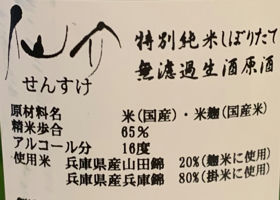 仙介
せんすけ
特別純米しぼりたて
無濾過生酒原酒
原材料名 米(国産)・米麹(国産米)
精米歩合 65%
アルコール分 16度
使用米 兵庫県産山田錦 20%(麹米に使用)
兵庫県産兵庫錦 80%(掛米に使用)